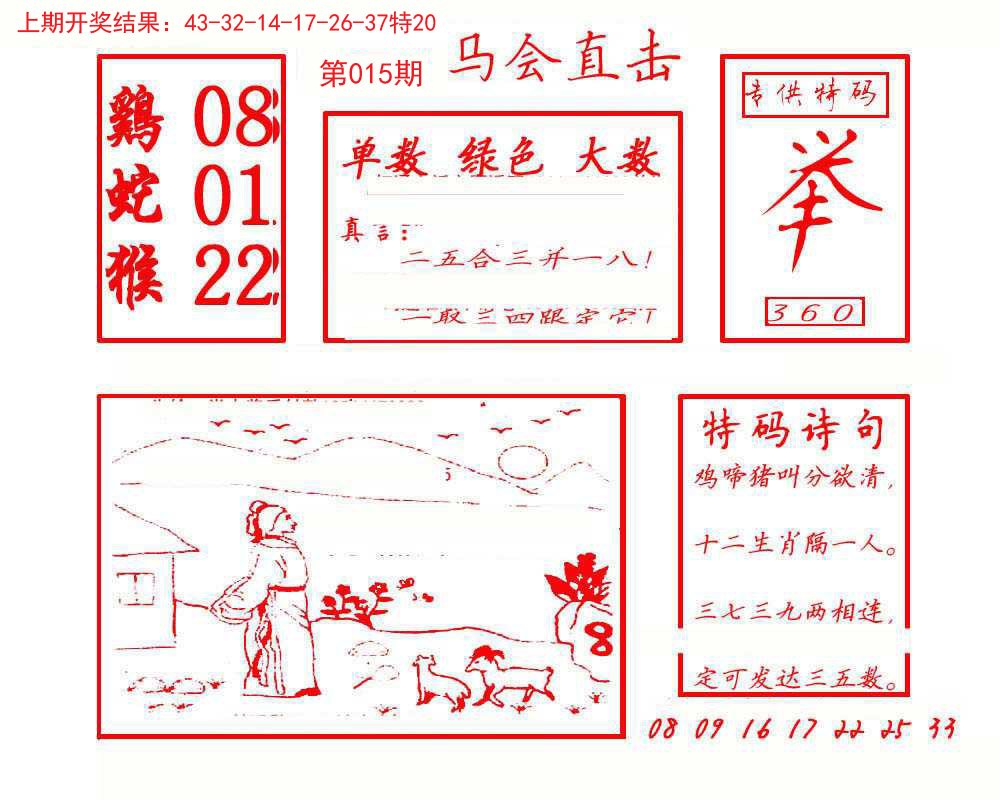 上期开奖结果：43-32-14-17-26-37特20
第015期
马会直击
鷄 08
蛇 01
猴 22
单数 绿色 大数
真言：
二五合三并一八！
二取三四跟定它
专供特码
举
360
8
特码诗句
鸡啼猪叫分欲清，
十二生肖隔一人。
三七三九两相连，
定可发达三五数。
08 09 16 17 22 25 33